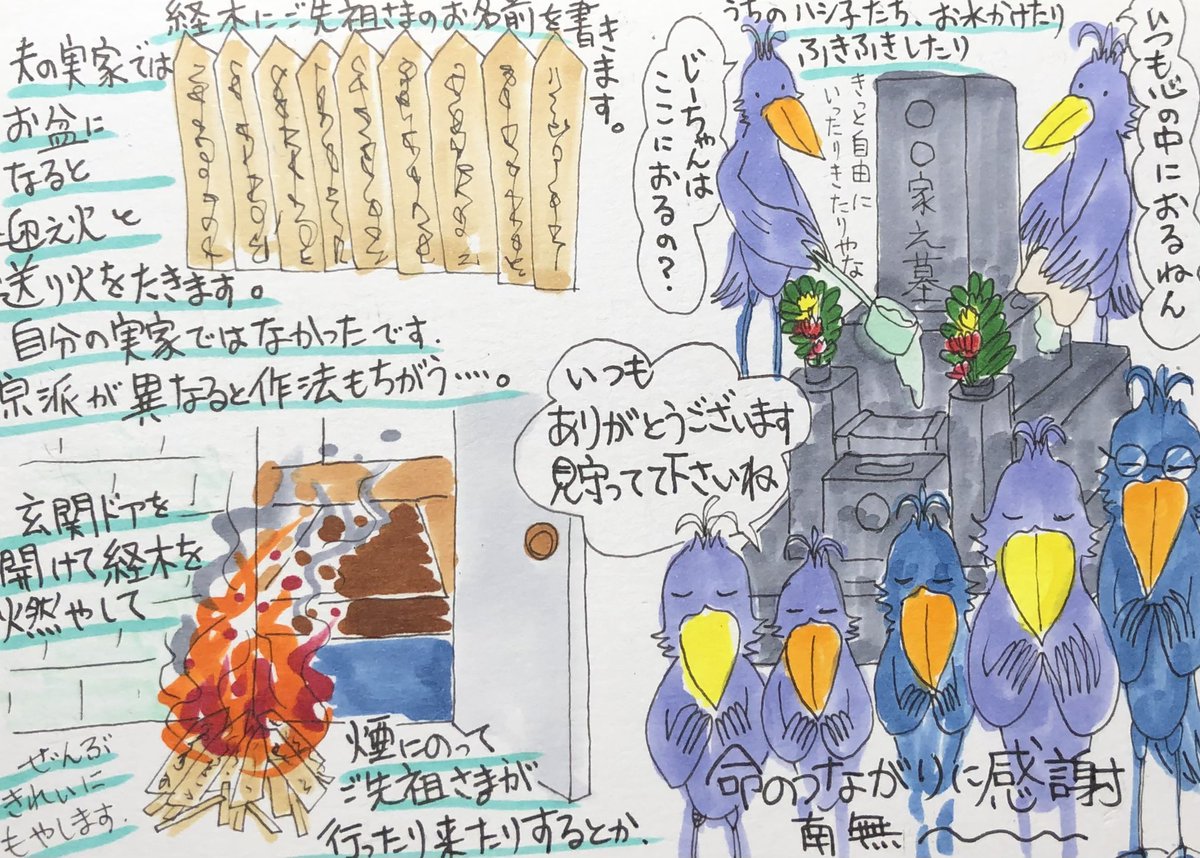 経木にご先祖さまのお名前を書きます。
夫の実家では
お盆に
なると
迎え火と
送り火をたきます。
自分の実家ではなかったです.
宗派が異なると作法もちがう‥‥。
玄関ドアを
開けて経木を
燃やして
ぜんぶ
きれいに
もやします.
煙にのって
ご先祖さまが
行ったり来たりするとか.
うちのハシ子たち、お水かけたり
ふきふきしたり
いつも心の中におるねん
じーちゃんは
ここにおるの?
きっと自由に
いったりきたりやな
○○家之墓
いつも
ありがとうございます
見守ってて下さいね
命のつながりに感謝
南無〜